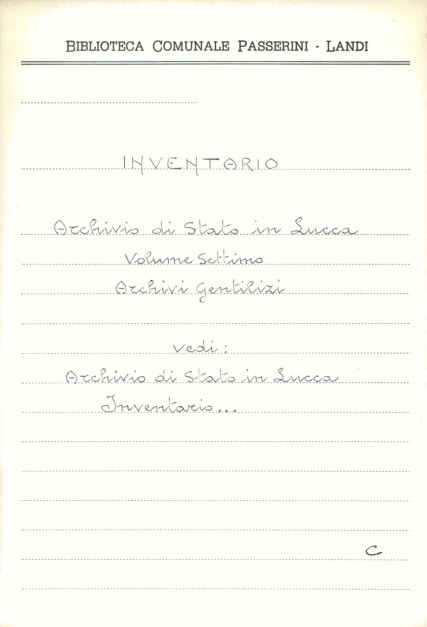 BIBLIOTECA COMUNALE PASSERINI - LANDI
INVENTARIO
Archivio di Stato in Lucca
Volume Settimo
Archivi Gentilizi
vedi:
Archivio di Stato in Lucca
Inventario...
C